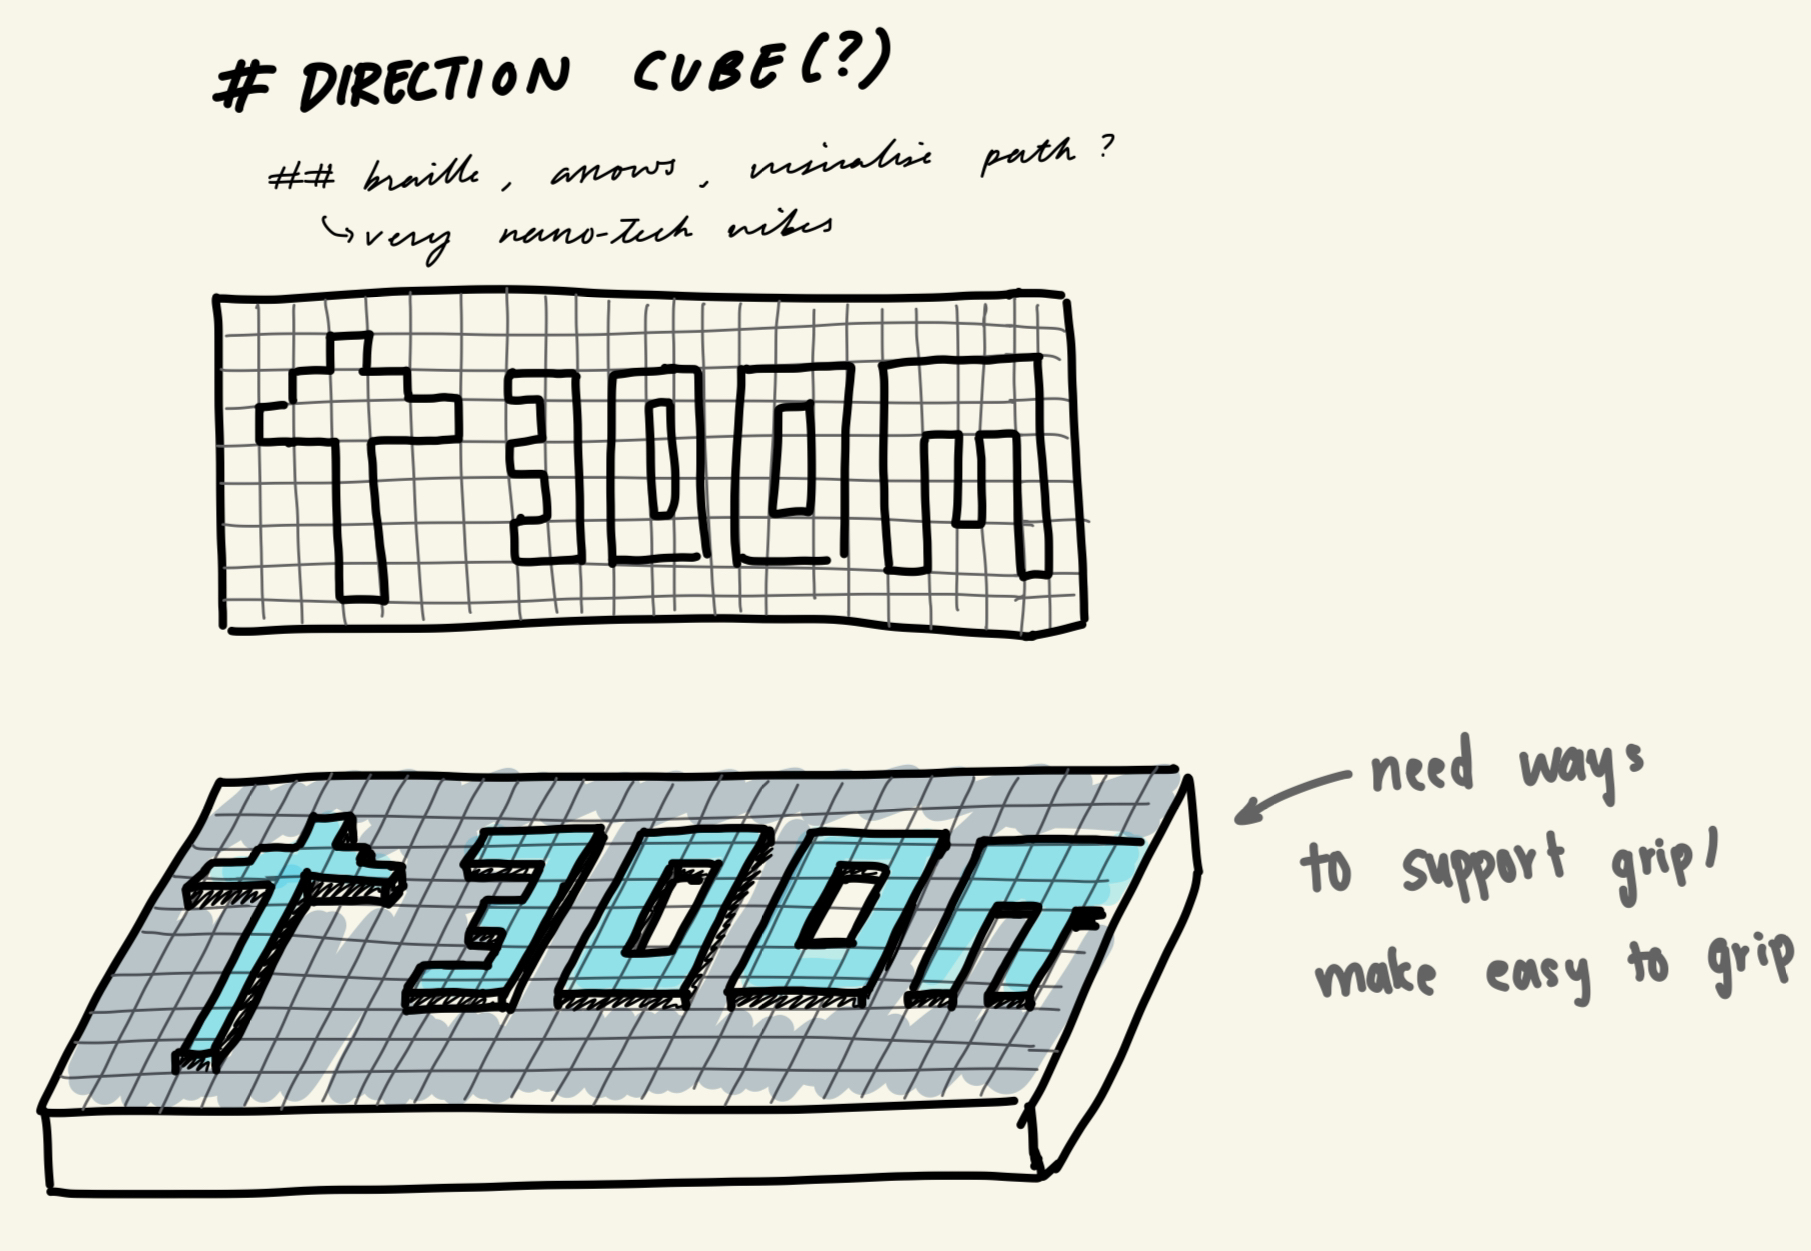 # DIRECTION CUBE(?)
## braille, arrows, visualise path?
↳ very nano-tech vibes
↑ 300m
↑ 300m
← need ways
to support grip/
make easy to grip